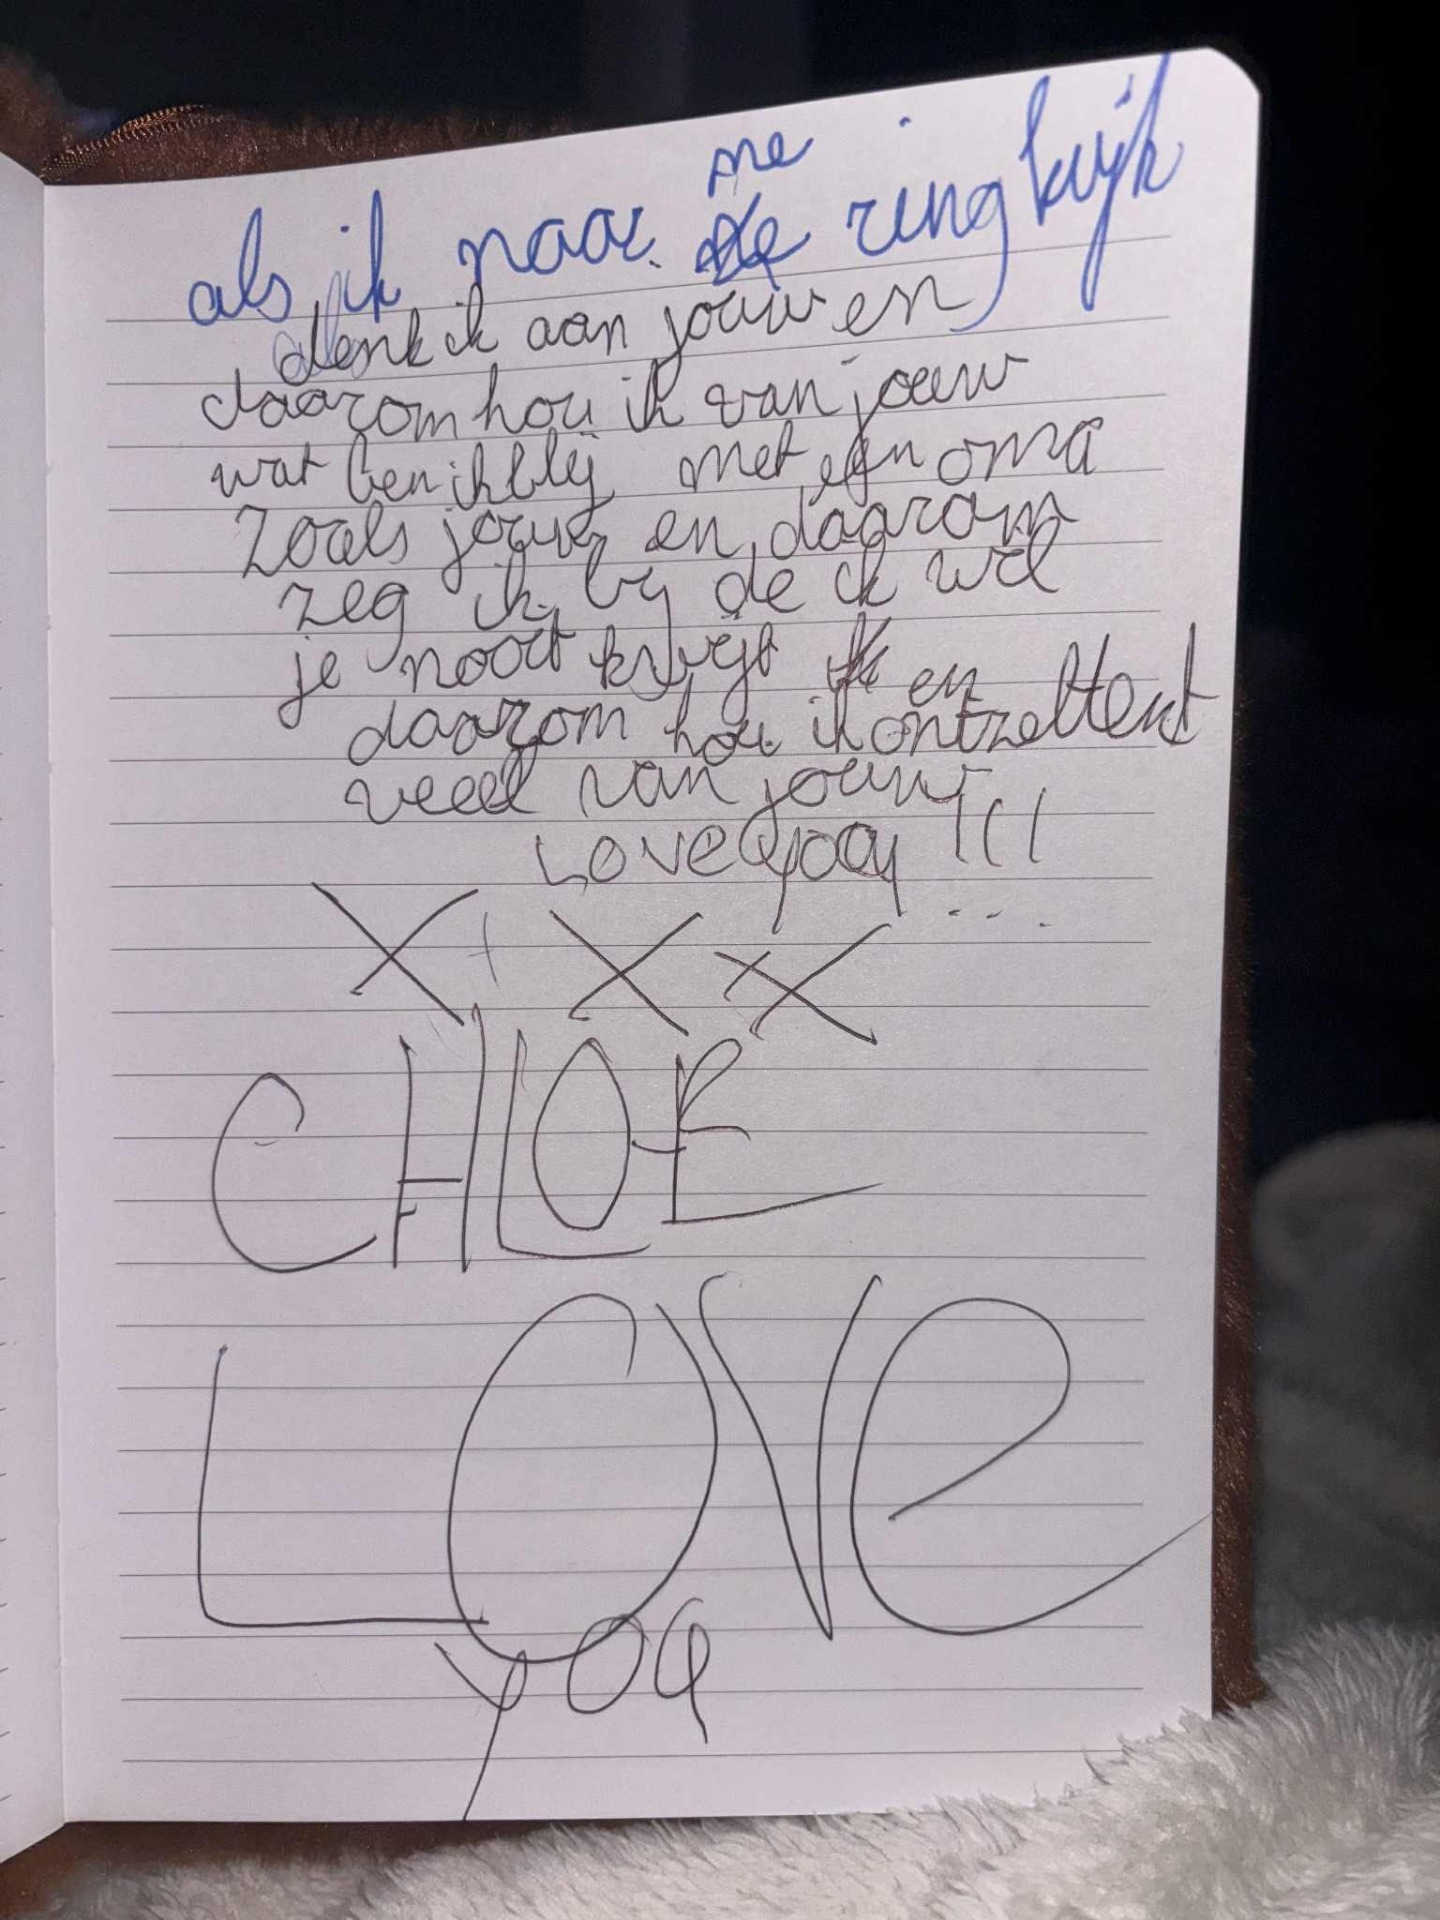 als ik naar me ring kijk
denk ik aan jouw en
daarom hou ik van jouw
wat ben ik blij met een oma
zoals jouw en daarom
zeg ik bij de ik wil
je nooit kwijt en
daarom hou ik ontzettent
veel van jouw
Love you !!!
X + X x X
CHLOE
LOVe
you